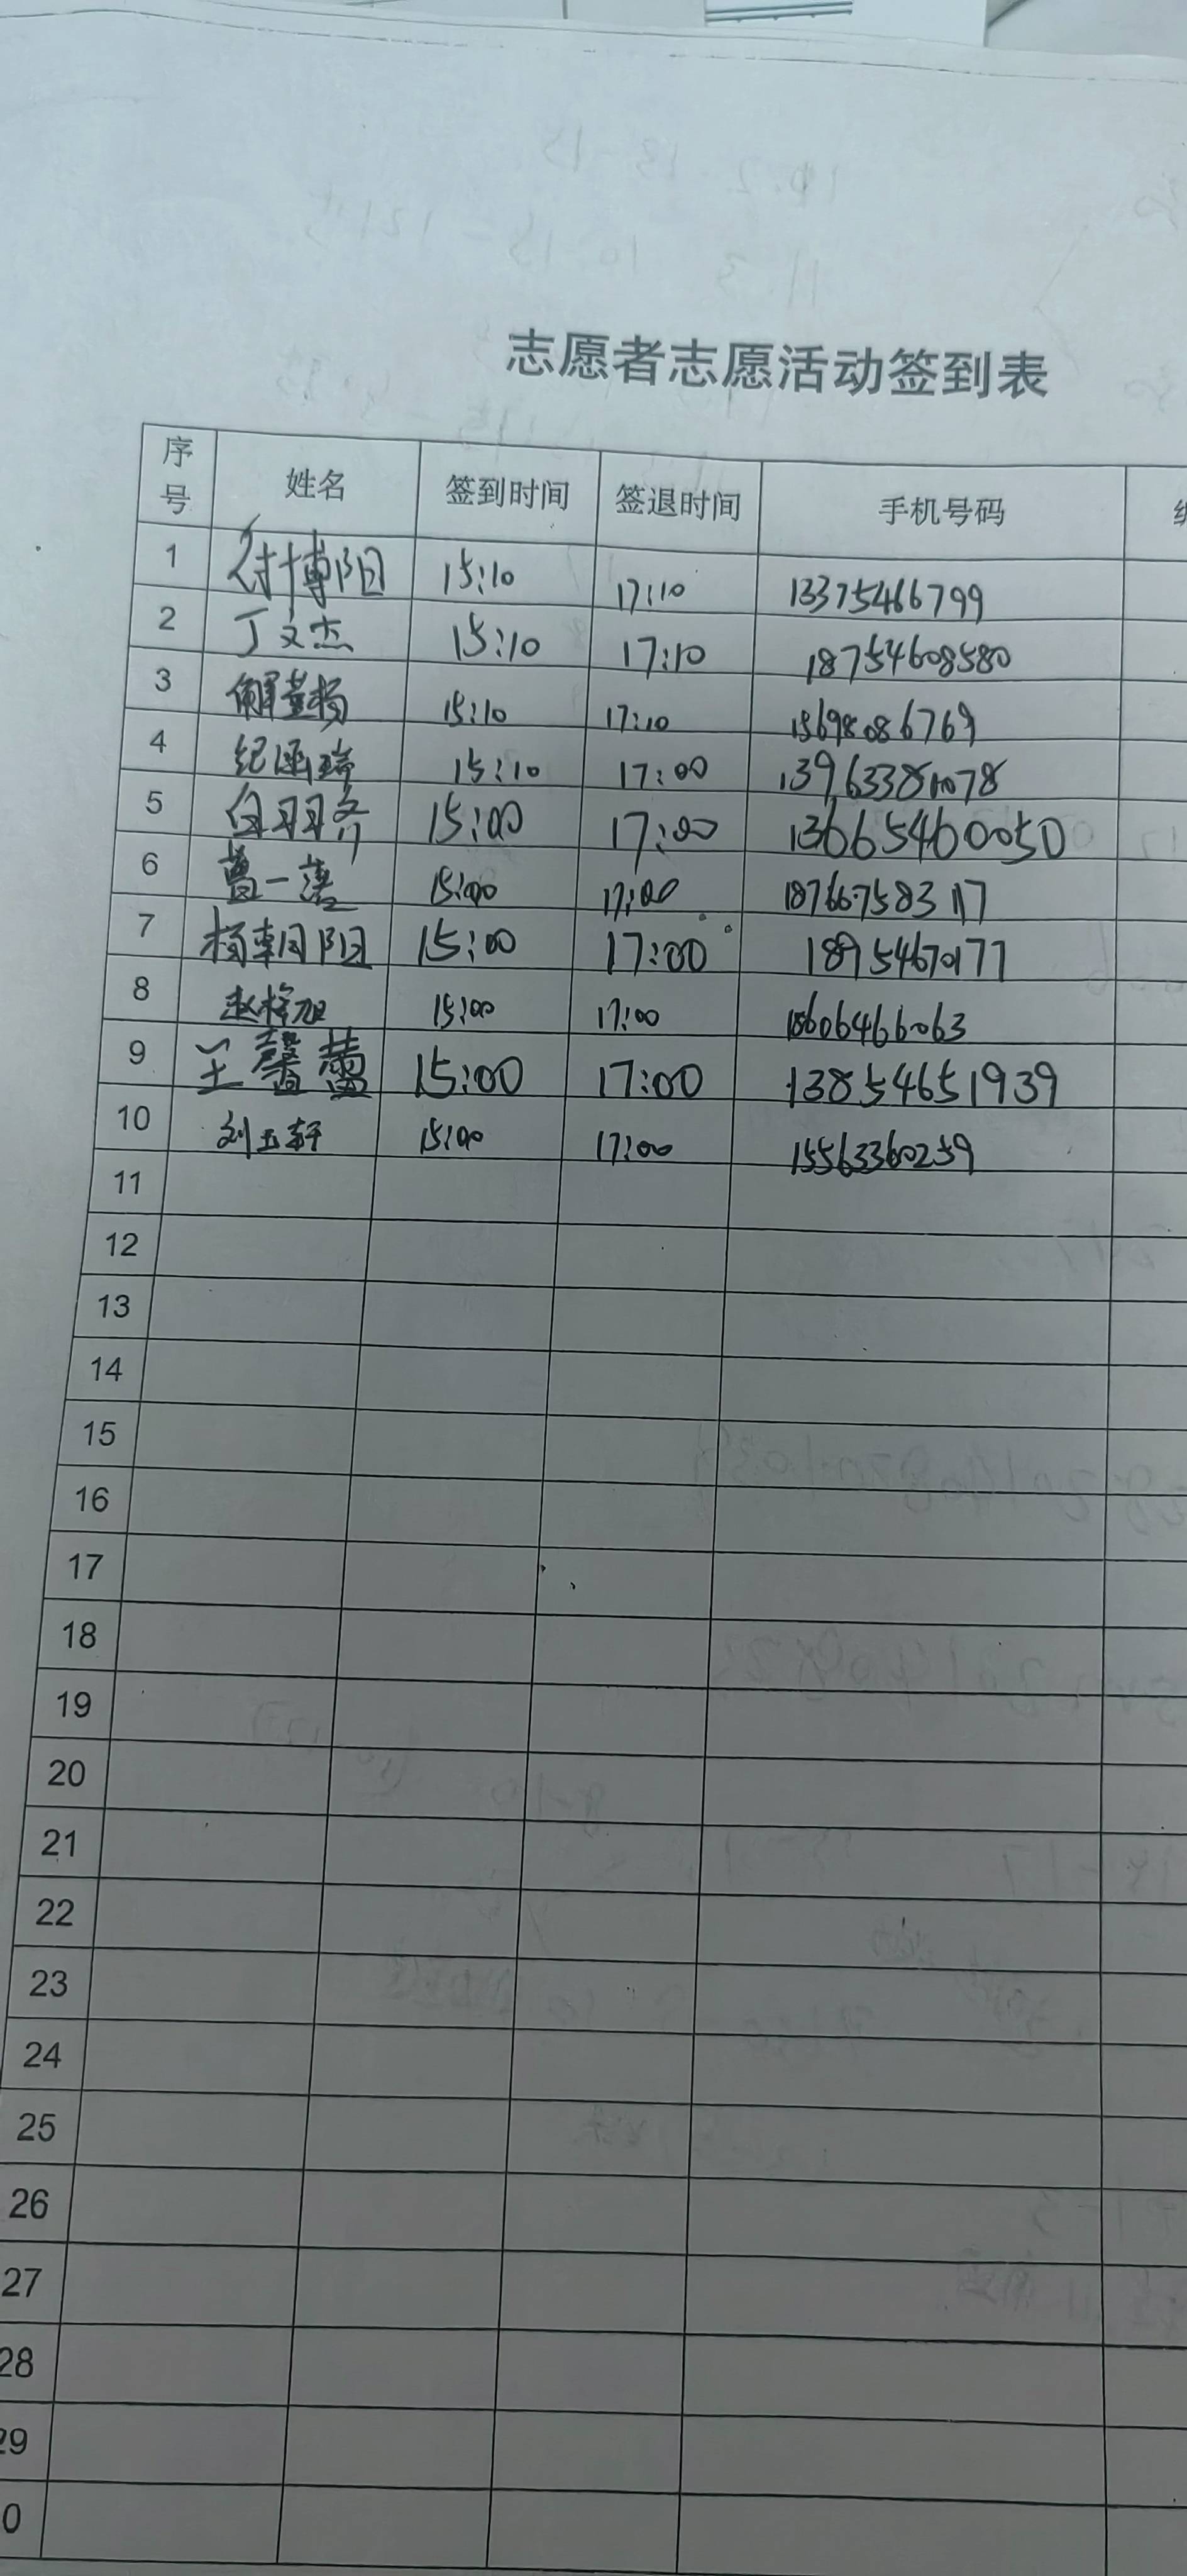 志愿者志愿活动签到表
序号 姓名 签到时间 签退时间 手机号码
1 付博阳 15:10 17:10 13375466799
2 丁文杰 15:10 17:10 18754608580
3 15:10 17:10 15698086769
4 纪函瑞 15:10 17:00
5 15:00 17:00 13665460050
6 曹一 15:00 17:00 18766758317
7 杨朝阳 15:00 17:00
8 赵梓旭 15:00 17:00 18606466063
9 王馨蕾 15:00 17:00 13854651939
10 刘玉轩 15:00 17:00 15563360259
11
12
13
14
15
16
17
18
19
20
21
22
23
24
25
26
27
28
29
0